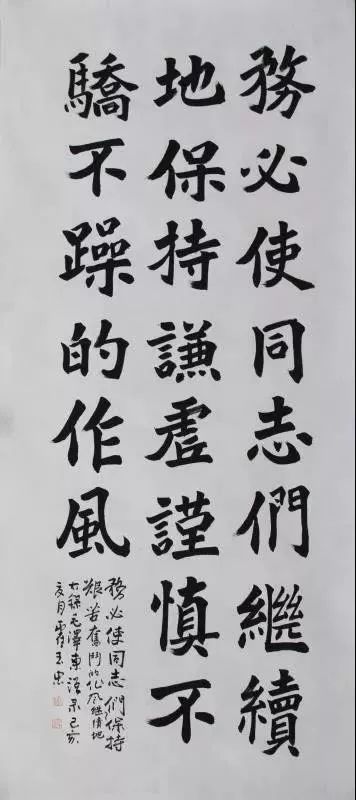 務必使同志們繼續
地保持謙虛謹慎不
驕不躁的作風
務必使同志們保持
艱苦奮鬥的作风继续地
毛澤東語录己亥
月王忠